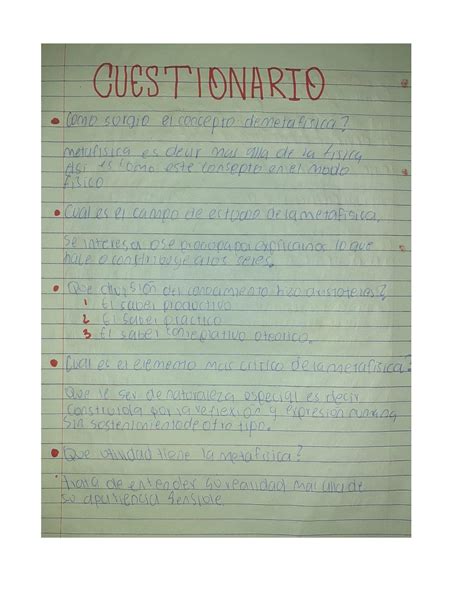 CUESTIONARIO
Como surgio el concepto de metafisica?
metafisica es decir mas alla de la fisica
Asi es como este consepto en el modo
fisico
Cual es el campo de estudio de la metafisica.
se interesa o se preocupa por explicarnos lo que
hace o constribuye a los seres.
Que división del conocimiento hizo aristoteles?
1 El saber productivo
2 El saber practico
3 El saber conteplativo o teorico.
Cual es el elemento mas critico de la metafisica?
Que le ser de naturaleza especial es decir
construida por la reflexión y expresión humana
sin sostenimiento de otro tipo.
Que utilidad tiene la metafisica?
trata de entender su realidad mas alla de
so apariencia sensible.